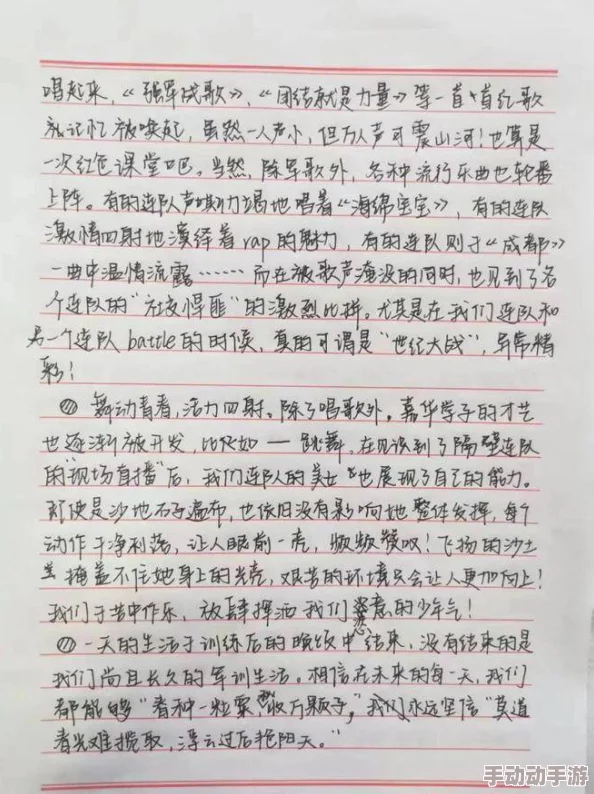 唱起来，《强军战歌》，《团结就是力量》等一首首红歌
就记忆被唤起，虽然一人声小，但万人声可震山河！也算是
一次红色课堂吧。当然，除军歌外，各种流行乐曲也轮番
上阵。有的连队声嘶力竭地唱着《海绵宝宝》，有的连队
激情四射地演绎着rap的魅力，有的连队则于《成都》
一曲中温情流露……而在被歌声淹没的同时，也见到了各
个连队的“社交悍匪”的激烈比拼。尤其是在我们连队和
另一个连队battle的时候，真的可谓是“世纪大战”，异常精
彩！
舞动青春，活力四射。除了唱歌外。嘉华学子的才艺
也逐渐被开发，比如——跳舞，在见识到了隔壁连队
的“现场直播”后，我们连队的美女也展现了自己的能力。
即使是沙地石子遍布，也依旧没有影响她整体发挥，每个
动作干净利落，让人眼前一亮，频频赞叹！飞扬的沙土
掩盖不住她身上的光亮，艰苦的环境只会让人更加向上！
我们于苦中作乐，放肆挥洒我们恣意的少年气！
一天的生活于训练后的晚颂中结束，没有结束的是
我们尚且长久的军训生活。相信在未来的每一天，我们
都能够“春种一粒粟，秋收万颗子，”我们永远坚信“莫道
春光难揽取，浮云过后艳阳天。”
手动动手游